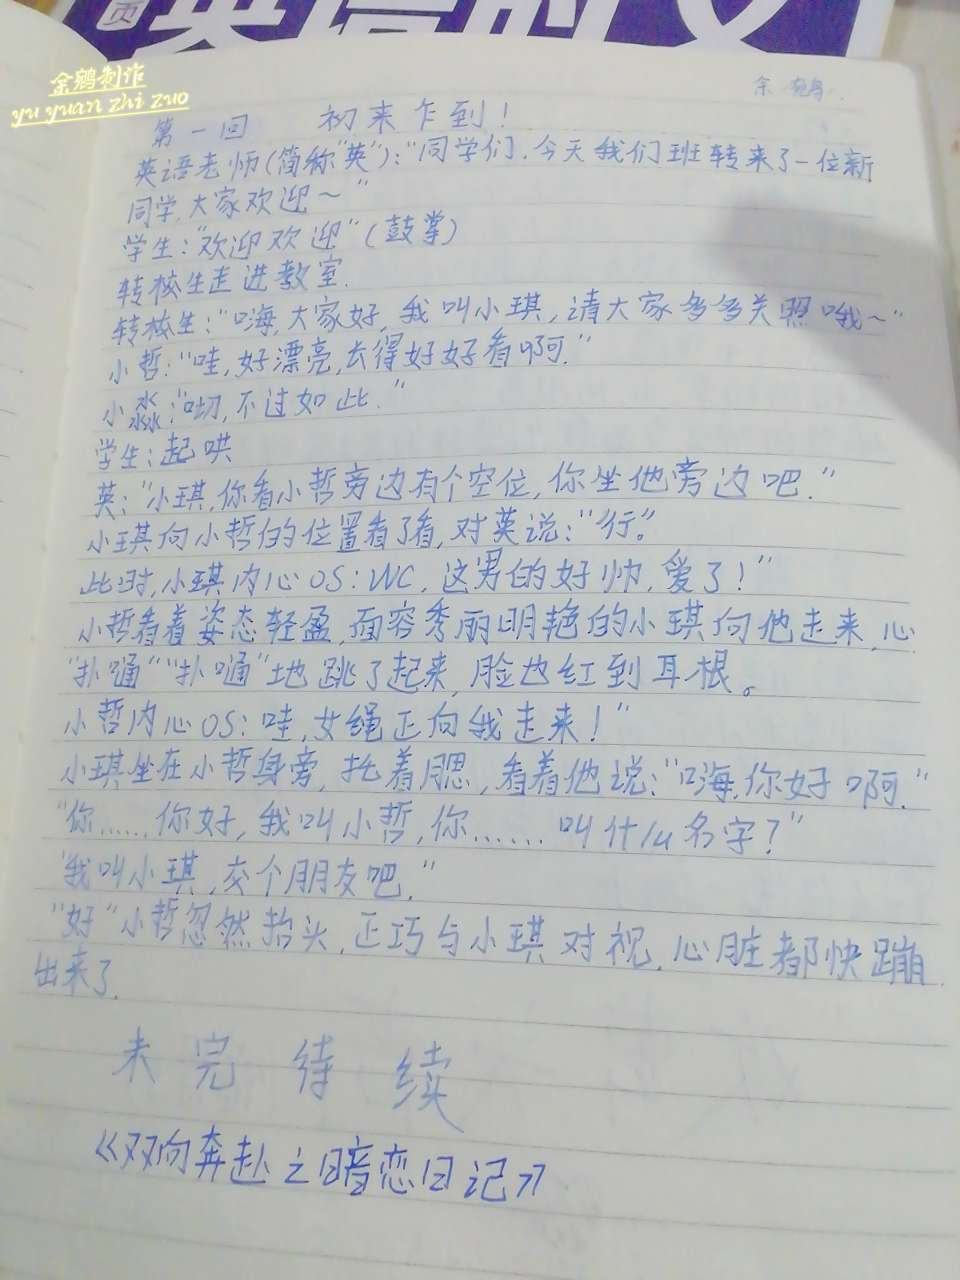 页 英语时文
余鹓制作
yu yuan zhi zuo
余 鹓
第一回 初来乍到!
英语老师(简称"英"):"同学们,今天我们班转来了一位新
同学,大家欢迎~"
学生:"欢迎欢迎"(鼓掌)
转校生走进教室.
转校生:"嗨,大家好,我叫小琪,请大家多多关照哦~"
小哲:"哇,好漂亮,长得好好看啊."
小淼:"切,不过如此."
学生:起哄
英:"小琪,你看小哲旁边有个空位,你坐他旁边吧."
小琪向小哲的位置看了看,对英说:"行"。
此时,小琪内心OS:WC,这男的好帅,爱了!"
小哲看着姿态轻盈,面容秀丽明艳的小琪向他走来,心
"扑嗵""扑嗵"地跳了起来,脸也红到耳根。
小哲内心OS:哇,女绳正向我走来!"
小琪坐在小哲身旁,托着腮,看着他说:"嗨,你好啊."
"你……你好,我叫小哲,你……叫什么名字?"
"我叫小琪,交个朋友吧."
"好"小哲忽然抬头,正巧与小琪对视,心脏都快蹦
出来了.
未完待续
《双向奔赴之暗恋日记》